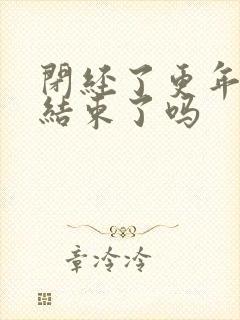 閉经了更年
結束了吗
章冷冷